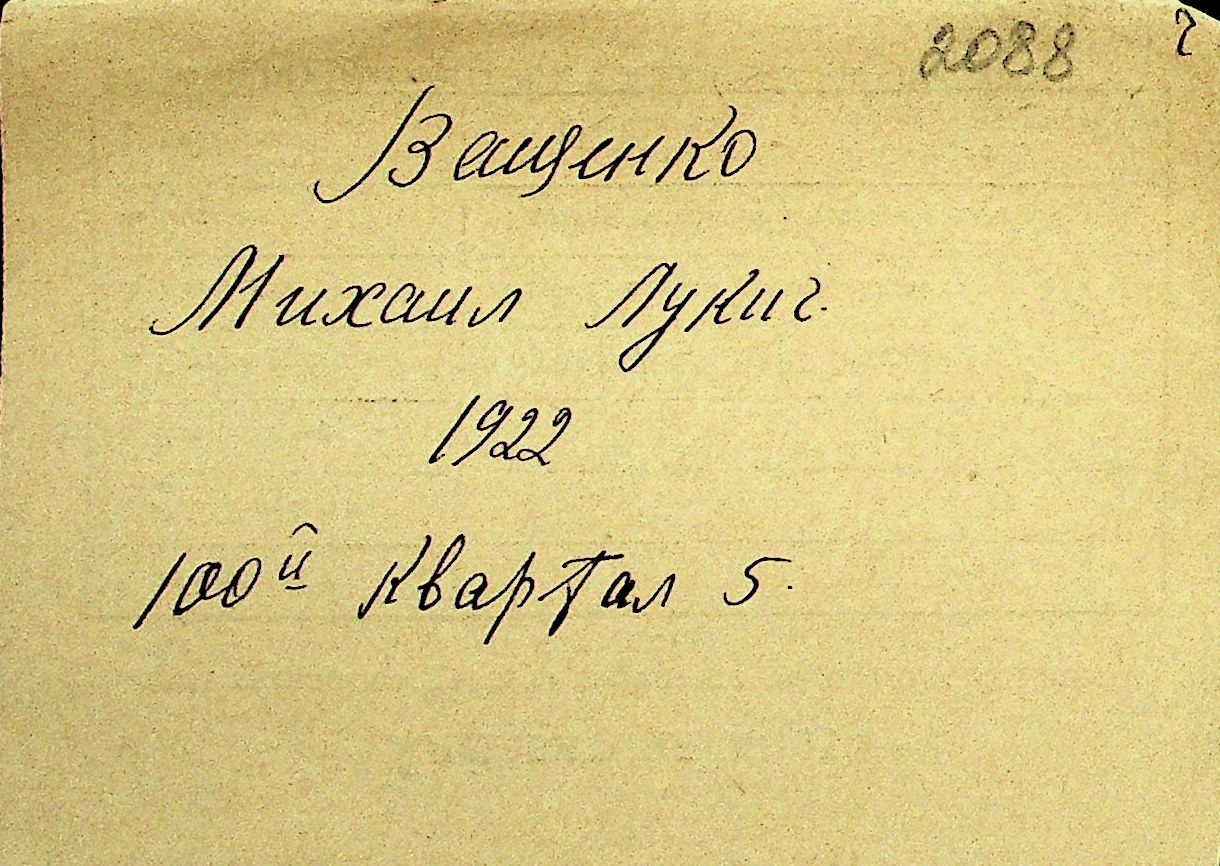 2088
Ващенко
Михаил Лукич.
1922
100й квартал 5.